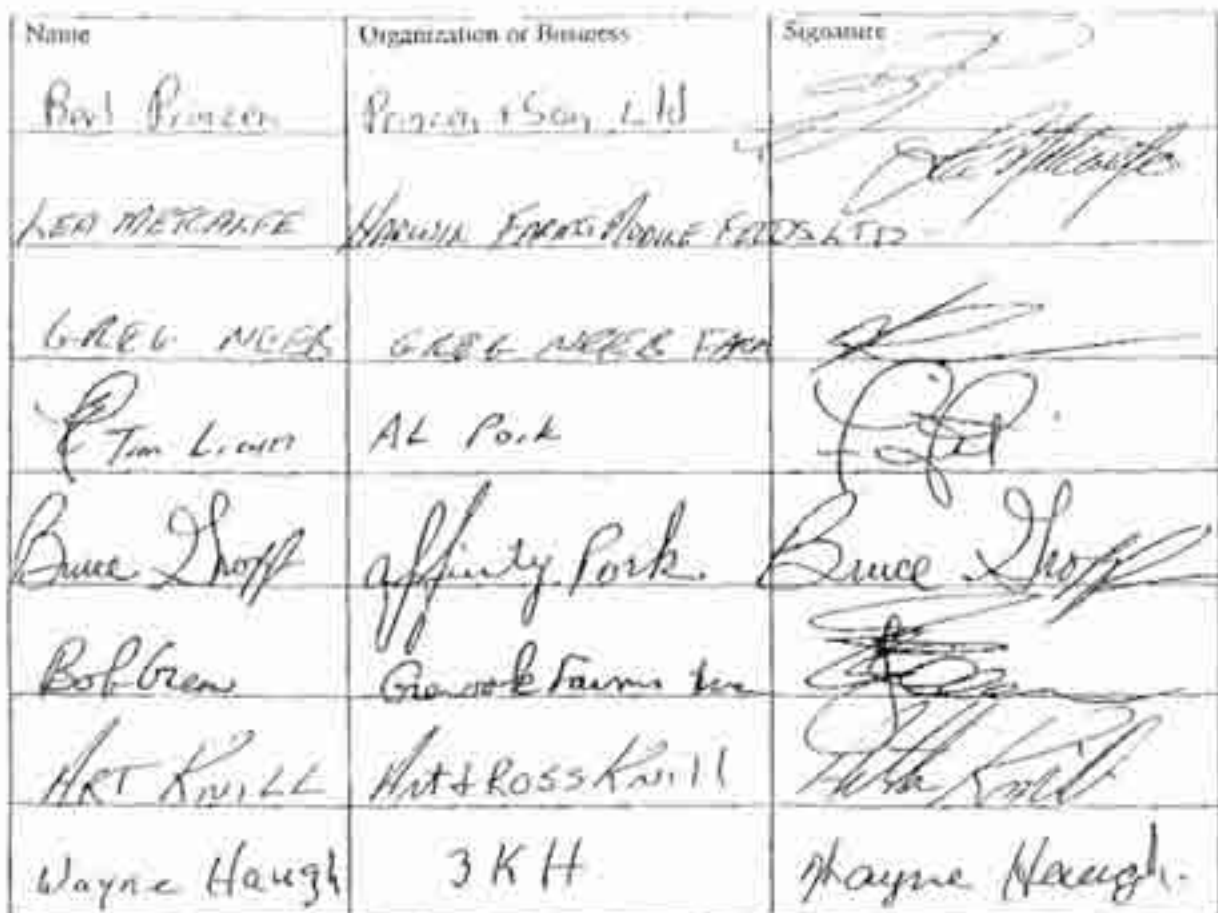 Name Organization or Business Signature
Prinzen Prinzen & Son Ltd
METCALFE FARMS MOBILE FEEDS LTD
GREG NEEB GREG NEEB FARM
Tim AL Pork
Bruce Shopf affinity Pork Bruce Shopf
Bob Grew Farms
ART KNILL Art & ROSS Knill Knill
Wayne Haugh 3KH Wayne Haugh